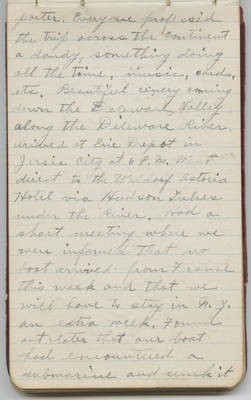 porter. Everyone professed
the trip across the Continent
a dandy, something doing
all the time, music, cards,
etc. Beautiful cinery coming
down the Deleware Valley
along the Dileware River.
arived at Erie Depot in
Jersie City at 6 P.M. Went
direct to the Waldorf Astoria
Hotel via Hudson Tubes
under the River. Had a
short meeting where we
were informed that no
boat arrived from France
this week and that we
will have to stay in N.Y.
an extra week. Found
out later that our boat
had encountered a
submarine and sunk it